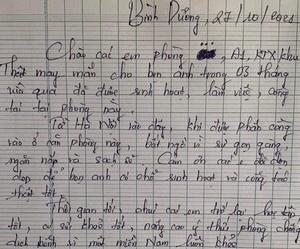 Bình Dương, 27/10/2021
Chào các em phòng A1, KTX khu
Thật may mắn cho bọn anh trong 03 tháng
vừa qua đã được sinh hoạt, làm việc, công
tác tại phòng này.
Từ Hà Nội vào đây, khi được phân công
vào ở căn phòng này, bất ngờ vì sự gọn gàng,
ngăn nắp và sạch sẽ. Cảm ơn các em đã dọn
dẹp để bọn anh có chỗ sinh hoạt và công tác
thật tốt.
Thời gian tới, chúc các em trở lại học tập
tốt, có sức khoẻ tốt, nâng cao ý thức phòng chống
dịch bệnh vì một miền Nam luôn khoẻ